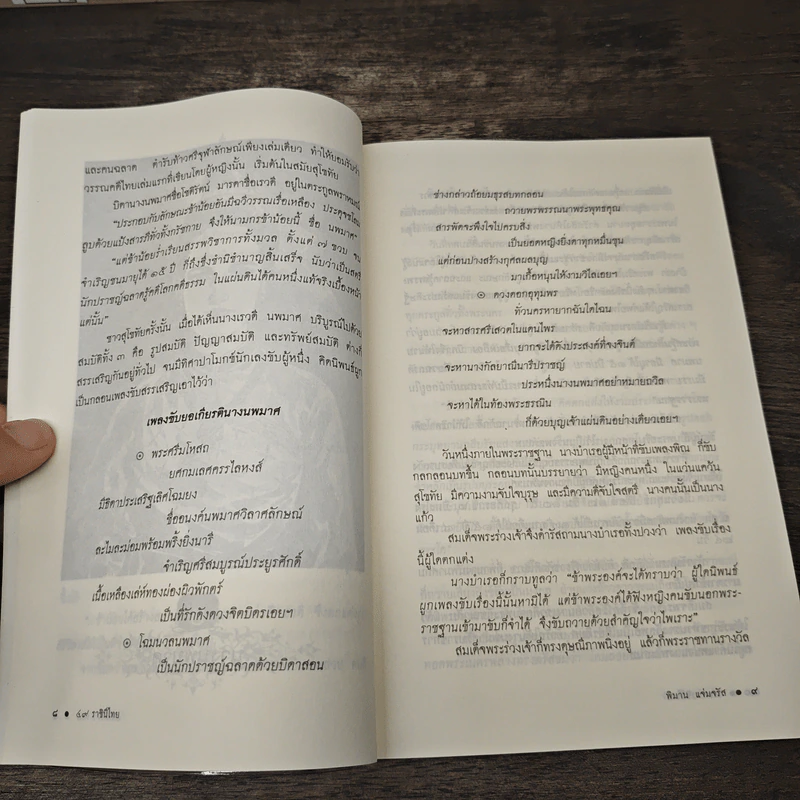 และคนฉลาด ตำรับท้าวศรีจุฬาลักษณ์เพียงเล่มเดียว ทำให้ยอมรับว่า
วรรณคดีไทยเล่มแรกที่เขียนโดยผู้หญิงนั้น เริ่มต้นในสมัยสุโขทัย
บิดานางนพมาศชื่อโชติรัตน์ มารดาชื่อเรวดี อยู่ในตระกูลพราหมณ์
"ประกอบกับลักษณะข้าน้อยอันมีฉวีวรรณเรื่อเหลือง ประดุจชโลม
ลูบด้วยแป้งสารภีทั่วทั้งกรัชกาย จึงให้นามกรข้าน้อยนี้ ชื่อ นพมาศ"
"แต่ข้าน้อยร่ำเรียนสรรพวิชาการทั้งมวล ตั้งแต่ ๗ ขวบ จน
จำเริญชนมายุได้ ๑๕ ปี ก็ถึงซึ่งชำนิชำนาญสิ้นเสร็จ นับว่าเป็นสตรี
นักปราชญ์ฉลาดรู้คดีโลกคดีธรรม ในแผ่นดินได้คนหนึ่งแท้จริงเบื้องหน้า
แต่นั้น"
ชาวสุโขทัยครั้งนั้น เมื่อได้เห็นนางเรวดี นพมาศ บริบูรณ์ไปด้วย
สมบัติทั้ง ๓ คือ รูปสมบัติ ปัญญาสมบัติ และทรัพย์สมบัติ ต่างก็
สรรเสริญกันอยู่ทั่วไป จนมีทิศาปาโมกข์นักเลงขับผู้หนึ่ง คิดนิพนธ์ผูก
เป็นกลอนเพลงขับสรรเสริญเอาไว้ว่า
เพลงขับยอเกียรตินางนพมาศ
๏ พระศรีมโหสถ
ยศกมเลศครรไลหงส์
มีธิดาประเสริฐเลิศโฉมยง
ชื่ออนงค์นพมาศวิลาศลักษณ์
ละไมละม่อมพร้อมพริ้งยิ่งนารี
จำเริญศรีสมบูรณ์ประยูรศักดิ์
เนื้อเหลืองเล่ห์ทองผ่องผิวพักตร์
เป็นที่รักดังดวงจิตบิตรเอยฯ
๏ โฉมนวลนพมาศ
เป็นนักปราชญ์ฉลาดด้วยบิดาสอน
๘ ● ๔๙ ราชินีไทย
ช่างกล่าวถ้อยมธุรสบทกลอน
ถวายพรพรรณนาพระพุทธคุณ
สารพัดจะพึงใจไปครบสิ่ง
เป็นยอดหญิงยิ่งดาทุกหมื่นขุน
แต่ก่อนปางสร้างกุศลผลบุญ
มาเกื้อหนุนให้งามวิไลเอยฯ
๏ ดวงดอกอุทุมพร
ทั่วนครหายากฉันใดไฉน
จะหาสารศรีเสวตในแดนไพร
ยากจะได้ดังประสงค์ที่จงจินต์
จะหานางกัลยาณีนารีปราชญ์
ประหนึ่งนางนพมาศอย่าหมายถวิล
จะหาได้ในท้องพระธรณิน
ก็ด้วยบุญเจ้าแผ่นดินอย่างเดียวเอยฯ
วันหนึ่งภายในพระราชฐาน นางบำเรอผู้มีหน้าที่ขับเพลงพิณ ก็ขับ
กลกลอนบทขึ้น กลอนบทนั้นบรรยายว่า มีหญิงคนหนึ่ง ในแว่นแคว้น
สุโขทัย มีความงามจับใจบุรุษ และมีความดีจับใจสตรี นางคนนั้นเป็นนาง
แก้ว
สมเด็จพระร่วงเจ้าจึงดำรัสถามนางบำเรอทั้งปวงว่า เพลงขับเรื่อง
นี้ผู้ใดตกแต่ง
นางบำเรอก็กราบทูลว่า "ข้าพระองค์จะได้ทราบว่า ผู้ใดนิพนธ์
ผูกเพลงขับเรื่องนี้นั้นหามิได้ แต่ข้าพระองค์ได้ฟังหญิงคนขับนอกพระ-
ราชฐานเข้ามาขับก็จำได้ จึงขับถวายด้วยสำคัญใจว่าไพเราะ"
สมเด็จพระร่วงเจ้าก็ทรงดุษณีภาพนิ่งอยู่ แล้วก็พระราชทานรางวัล
พิมาน แจ่มจรัส ● ๙